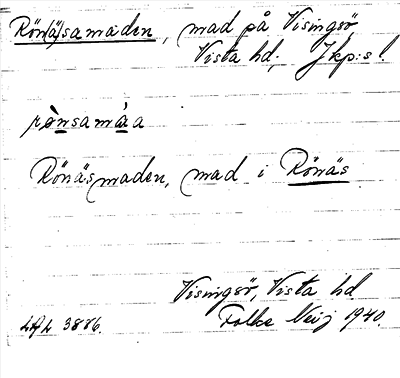 Rön(ä)samaden, mad på Visingsö,
Vista hd; Jkp:s l.
rònsamáa
Rönäsmaden, mad i Rönäs
Visingsö, Vista hd
LAL 3886. Folke Neij 1940.